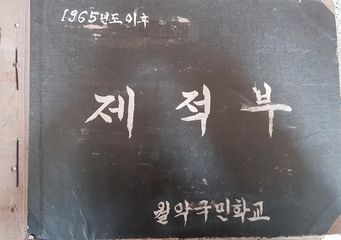 1965년도이후
제적부
월악국민학교